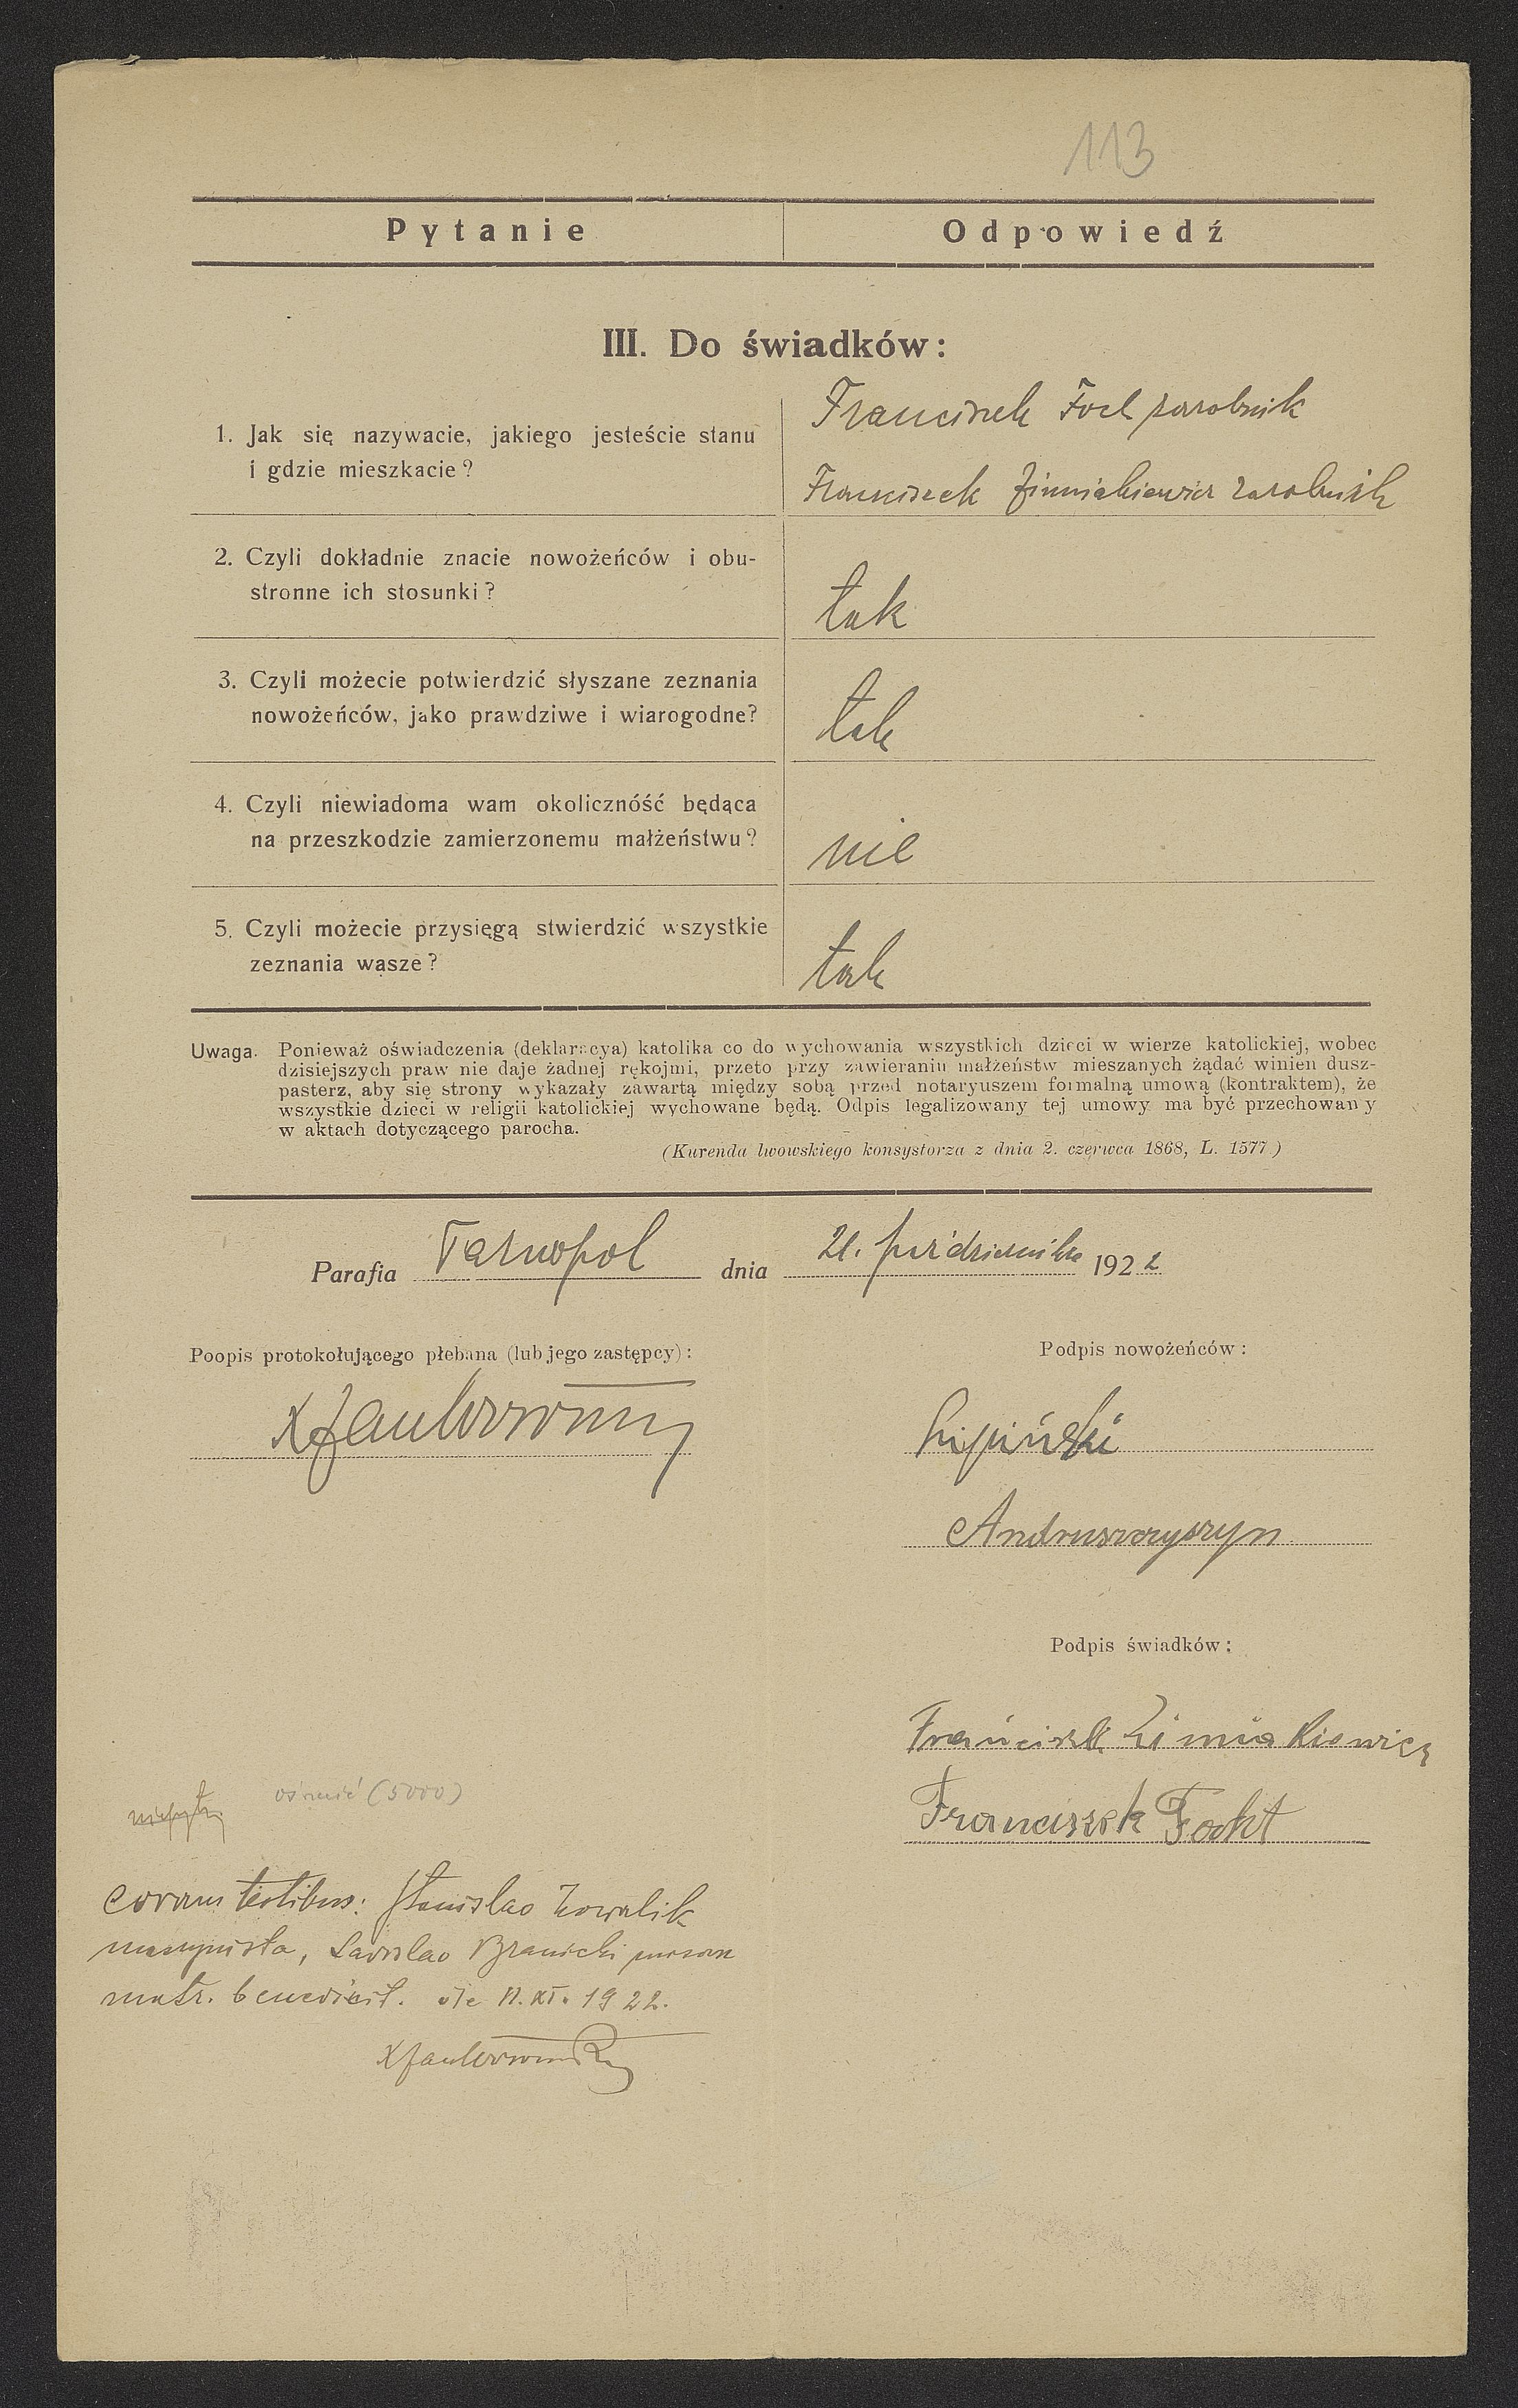 113
Pytanie
Odpowiedź
III. Do świadków:
1. Jak się nazywacie, jakiego jesteście stanu
i gdzie mieszkacie?
Franciszek zarobnik
Franciszek Zimniakiewicz zarobnik
2. Czyli dokładnie znacie nowożeńców i obu-
stronne ich stosunki?
tak
3. Czyli możecie potwierdzić słyszane zeznania
nowożeńców, jako prawdziwe i wiarogodne?
tak
4. Czyli niewiadoma wam okolicznóść będąca
na przeszkodzie zamierzonemu małżeństwu?
nie
5. Czyli możecie przysięgą stwierdzić wszystkie
zeznania wasze?
tak
Uwaga. Ponieważ oświadczenia (deklaracya) katolika co do wychowania wszystkich dzieci w wierze katolickiej, wobec
dzisiejszych praw nie daje żadnej rękojmi, przeto przy zawieraniu małżeństw mieszanych żądać winien dusz-
pasterz, aby się strony wykazały zawartą między sobą przed notaryuszem formalną umową (kontraktem), że
wszystkie dzieci w religii katolickiej wychowane będą. Odpis legalizowany tej umowy ma być przechowany
w aktach dotyczącego parocha.
(Kurenda lwowskiego konsystorza z dnia 2. czerwca 1868, L. 1577)
Parafia Tarnopol dnia 21. października 1922
Poopis protokołującego plebana (lub jego zastępcy):
Podpis nowożeńców:
Lipiński
Andruszczyszyn
Podpis świadków:
Franciszek Zimniakiewicz
Franciszek Fockt
(5000)
coram testibus: Stanislao Kowalik
maszynista, Ladislao Branicki
matr. benedixit. die 11. XI. 1922.